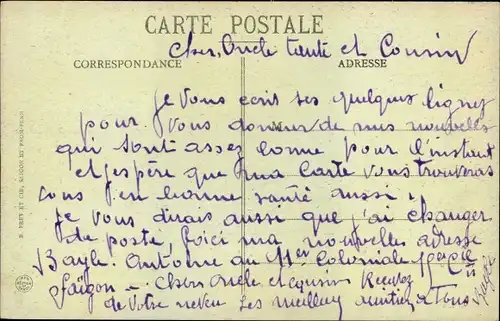 CARTE POSTALE
Cher, Oncle tante et Cousin
CORRESPONDANCE
ADRESSE
je Vous ecris ses quelques lignes
pour Vous donner de mes nouvelles
qui sont assez bonne pour l'instant
et j'espère que ma Carte Vous trouveras
tous en bonne santé aussi.
je Vous dirais aussi que j'ai changer
de poste, Voici ma nouvelles adresse
Bayle Antoine au 11er Coloniale 1er Cie
Saïgon - Chers Oncle et Cousins Recevez
de Votre neveu Les meilleur amitier a Tous